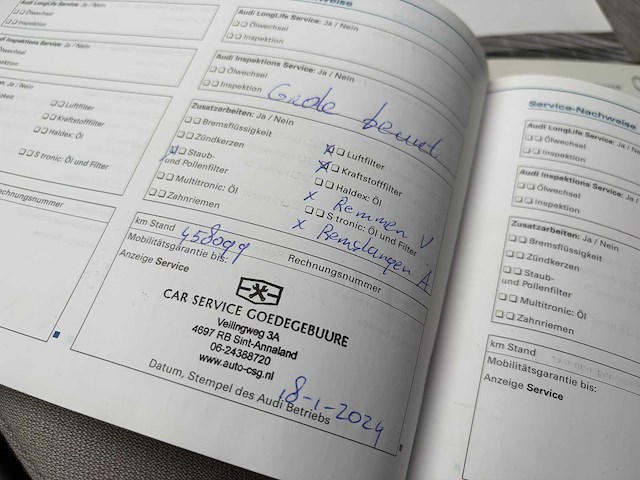 Audi LongLife Service: Ja / Nein
Ölwechsel
Inspektion
Audi Inspektions Service: Ja / Nein
Ja / Nein
Luftfilter
Kraftstofffilter
Haldex: Öl
S tronic: Öl und Filter
Rechnungsnummer
Audi LongLife Service: Ja / Nein
Ölwechsel
Inspektion
Audi Inspektions Service: Ja / Nein
Ölwechsel
Inspektion
Grote beurt
Zusatzarbeiten: Ja / Nein
Bremsflüssigkeit
Zündkerzen
Staub-
und Pollenfilter
Multitronic: Öl
Zahnriemen
x Luftfilter
x Kraftstofffilter
Haldex: Öl
x Remmen V
S tronic: Öl und Filter
x Remslangen A
km Stand 458099
Mobilitätsgarantie bis:
Rechnungsnummer
Anzeige Service
CAR SERVICE GOEDEGEBUURE
Veilingweg 3A
4697 RB Sint-Annaland
06-24388720
www.auto-csg.nl
18-1-2024
Datum, Stempel des Audi Betriebs
Service-Nachweise
Audi LongLife Service: Ja / Nein
Ölwechsel
Inspektion
Audi Inspektions Service: Ja /
Ölwechsel
Inspektion
Zusatzarbeiten: Ja / Nein
Bremsflüssigkeit
Zündkerzen
Staub-
und Pollenfilter
Multitronic: Öl
Zahnriemen
km Stand
Mobilitätsgarantie bis:
Anzeige Service